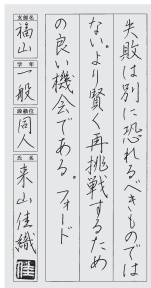 失敗は別に恐れるべきものでは
ない。より賢く再挑戦するため
の良い機会である。フォード
支部名
福山
学年
一般
段級位
同人
氏名
来山佳織
佳